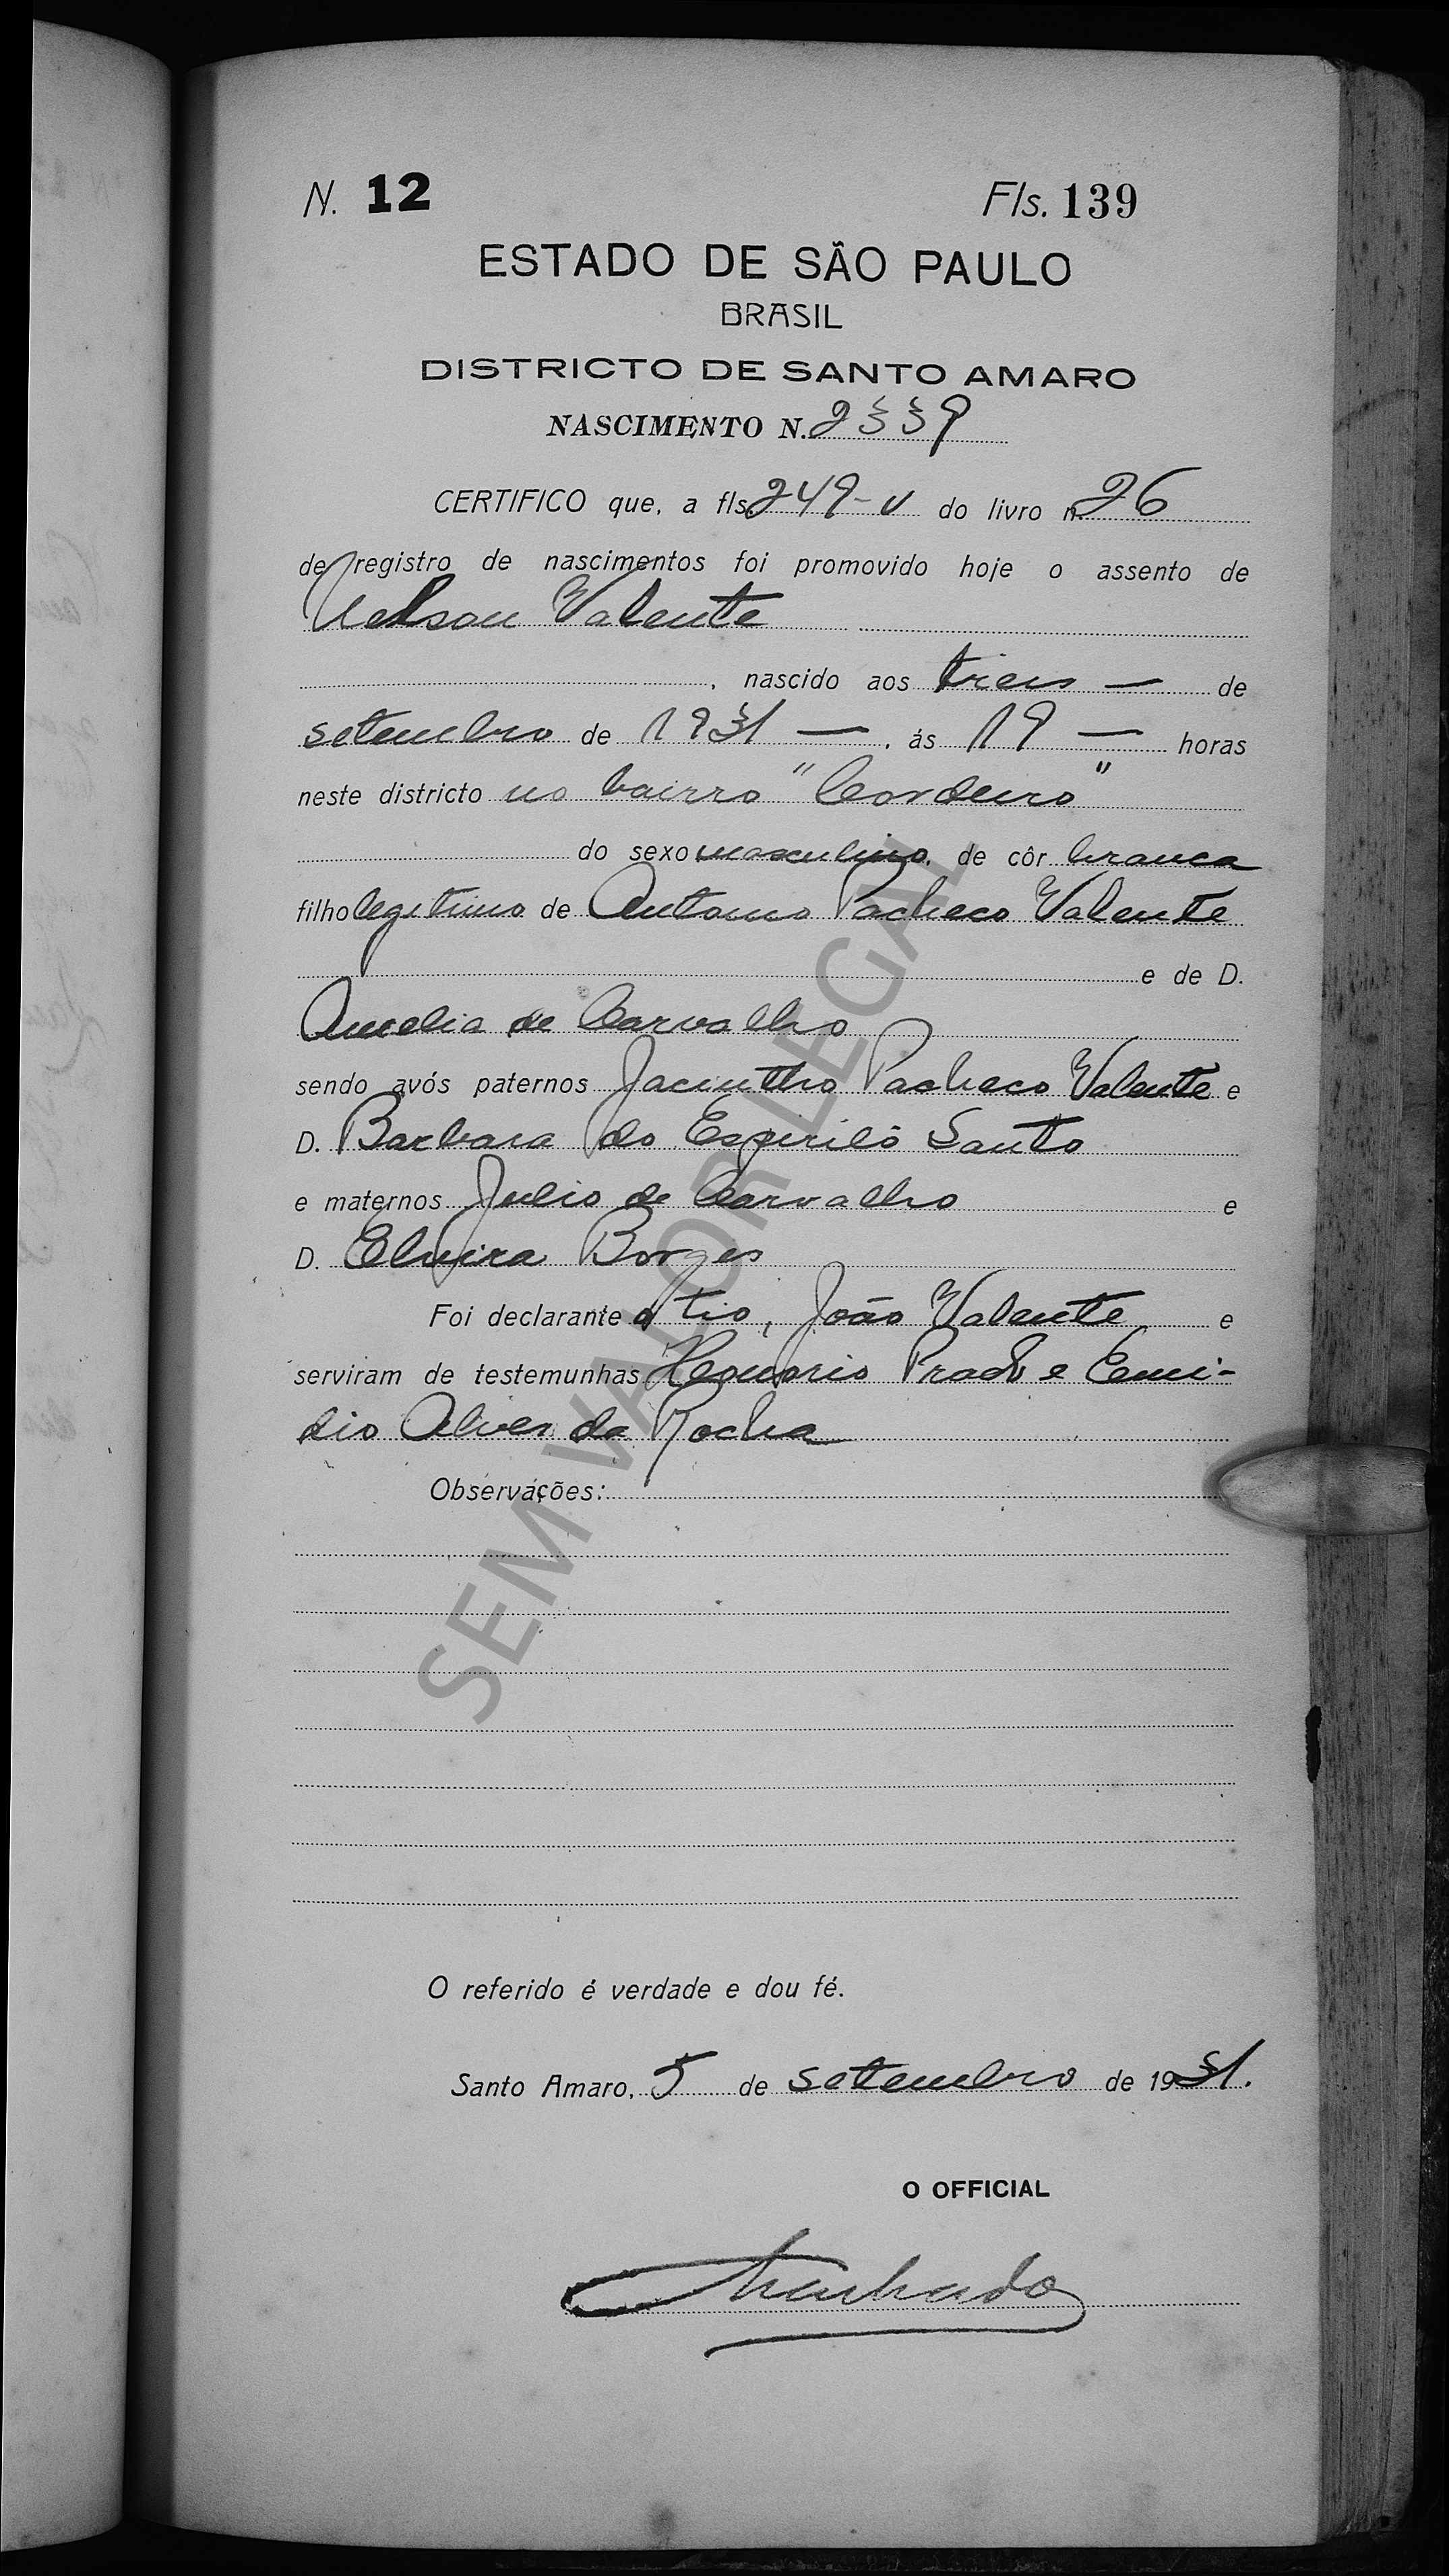 N. 12 Fls. 139
ESTADO DE SÃO PAULO
BRASIL
DISTRICTO DE SANTO AMARO
NASCIMENTO N. 2339
CERTIFICO que, a fls. 249-v do livro n. 26
de registro de nascimentos foi promovido hoje o assento de
Nelson Valente
, nascido aos treis — de
setembro de 1931 — , ás 19 — horas
neste districto no bairro "Cordeiro"
do sexo masculino, de côr branca
filho legitimo de Antonio Pacheco Valente
e de D.
Amelia de Carvalho
sendo avós paternos Jacintho Pacheco Valente e
D. Barbara do Espirito Santo
e maternos Julio de Carvalho e
D. Elvira Borges
Foi declarante o tio, João Valente e
serviram de testemunhas Honorio Prado e Emi-
dio Alves da Rocha
Observações:
O referido é verdade e dou fé.
Santo Amaro, 5 de setembro de 1931.
O OFFICIAL
Machado
SEM VALOR LEGAL